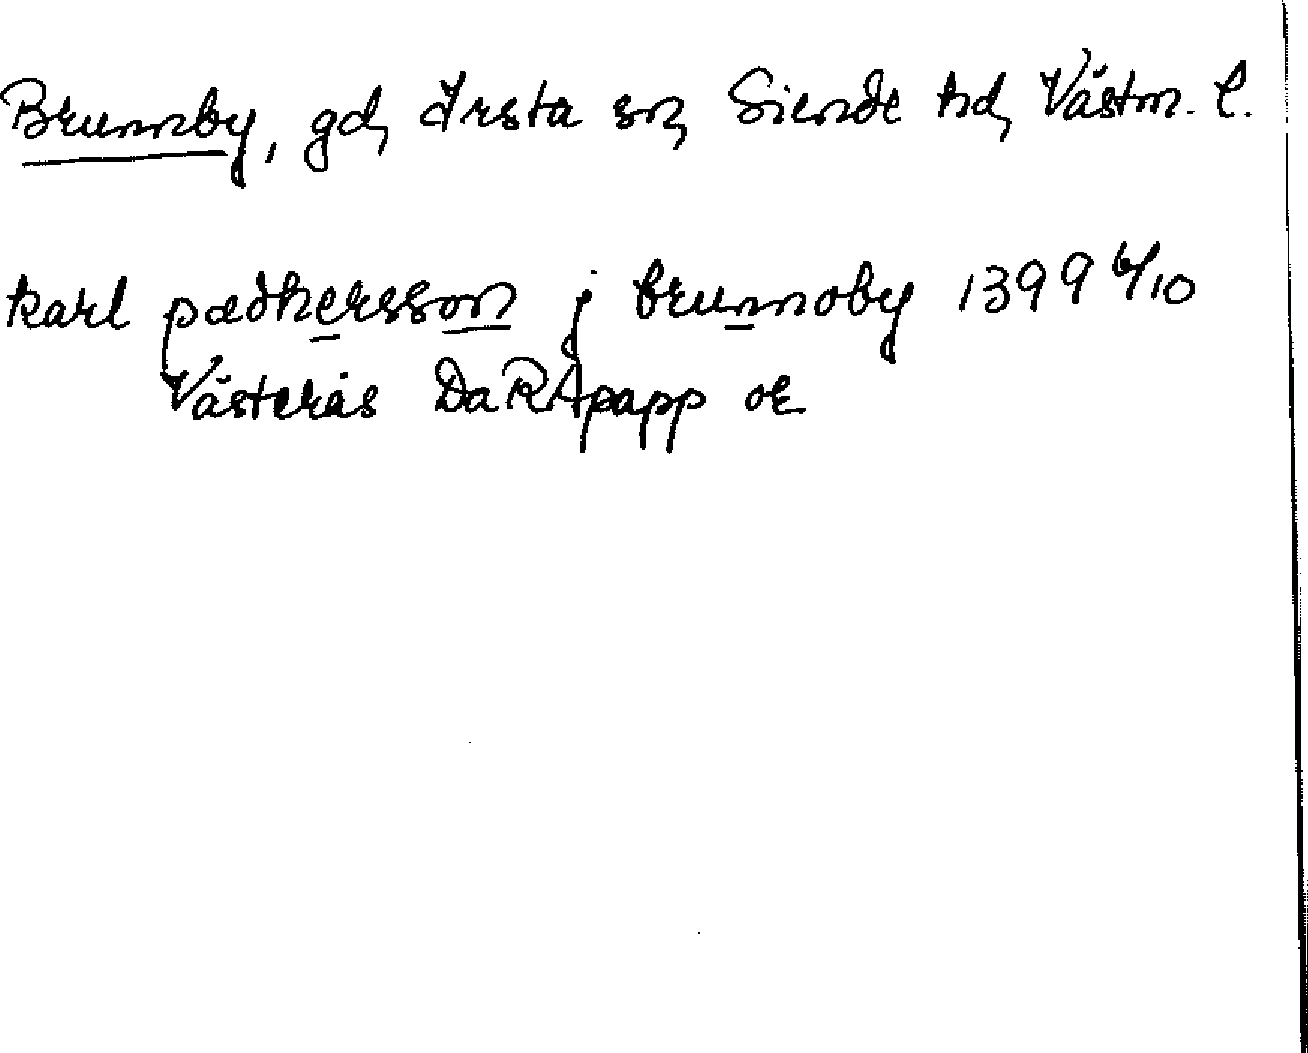 Brunnby, gd, Irsta sn, Siende hd, Västm. l.
karl pædhersson j brunnoby 1399 6/10
Västerås Da RApapp or